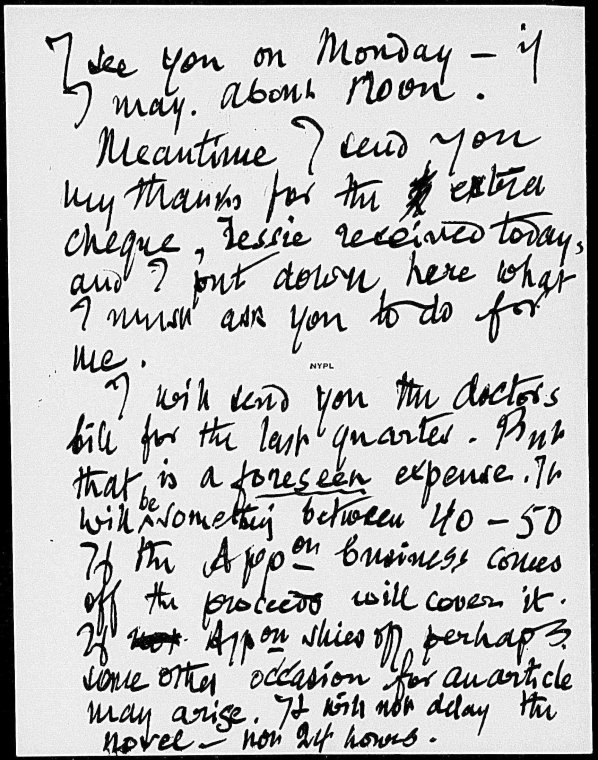 I see you on Monday – if
I may. About Noon.
Meantime I send you
my thanks for the extra
cheque, Jessie received today,
and I put down here what
I must ask you to do for
me.
NYPL
I will send you the doctors
bill for the last quarter. But
that is a foreseen expense. It
will be something between 40 – 50
If the Appon business comes
off the proceeds will cover it.
If Appon shies off perhaps
some other occasion for an article
may arise. It will not delay the
novel – not 24 hours.